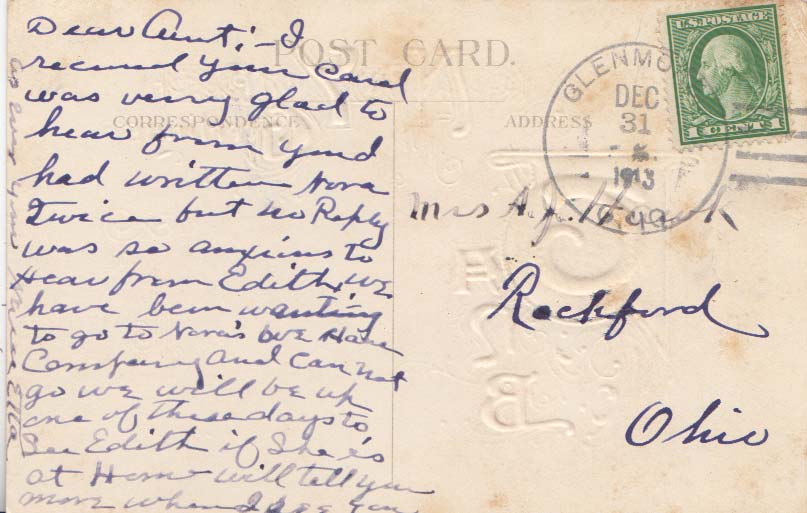 Dear Aunt:- I
recieved your Card
was verry glad to
hear from you I
had written Nora
Twice but no Reply
was so anxious to
Hear from Edith, we
have been wanting
to go to Nora's but we Have
Company and Can not
go we will be up
one of these days to
See Edith if She's
at Home will tell you
more when I see you
Ella
POST CARD.
CORRESPONDENCE
ADDRESS
GLENMO
DEC
31
1913
U.S. POSTAGE
1 CENT 1
Mrs A.J.
Rockford
Ohio